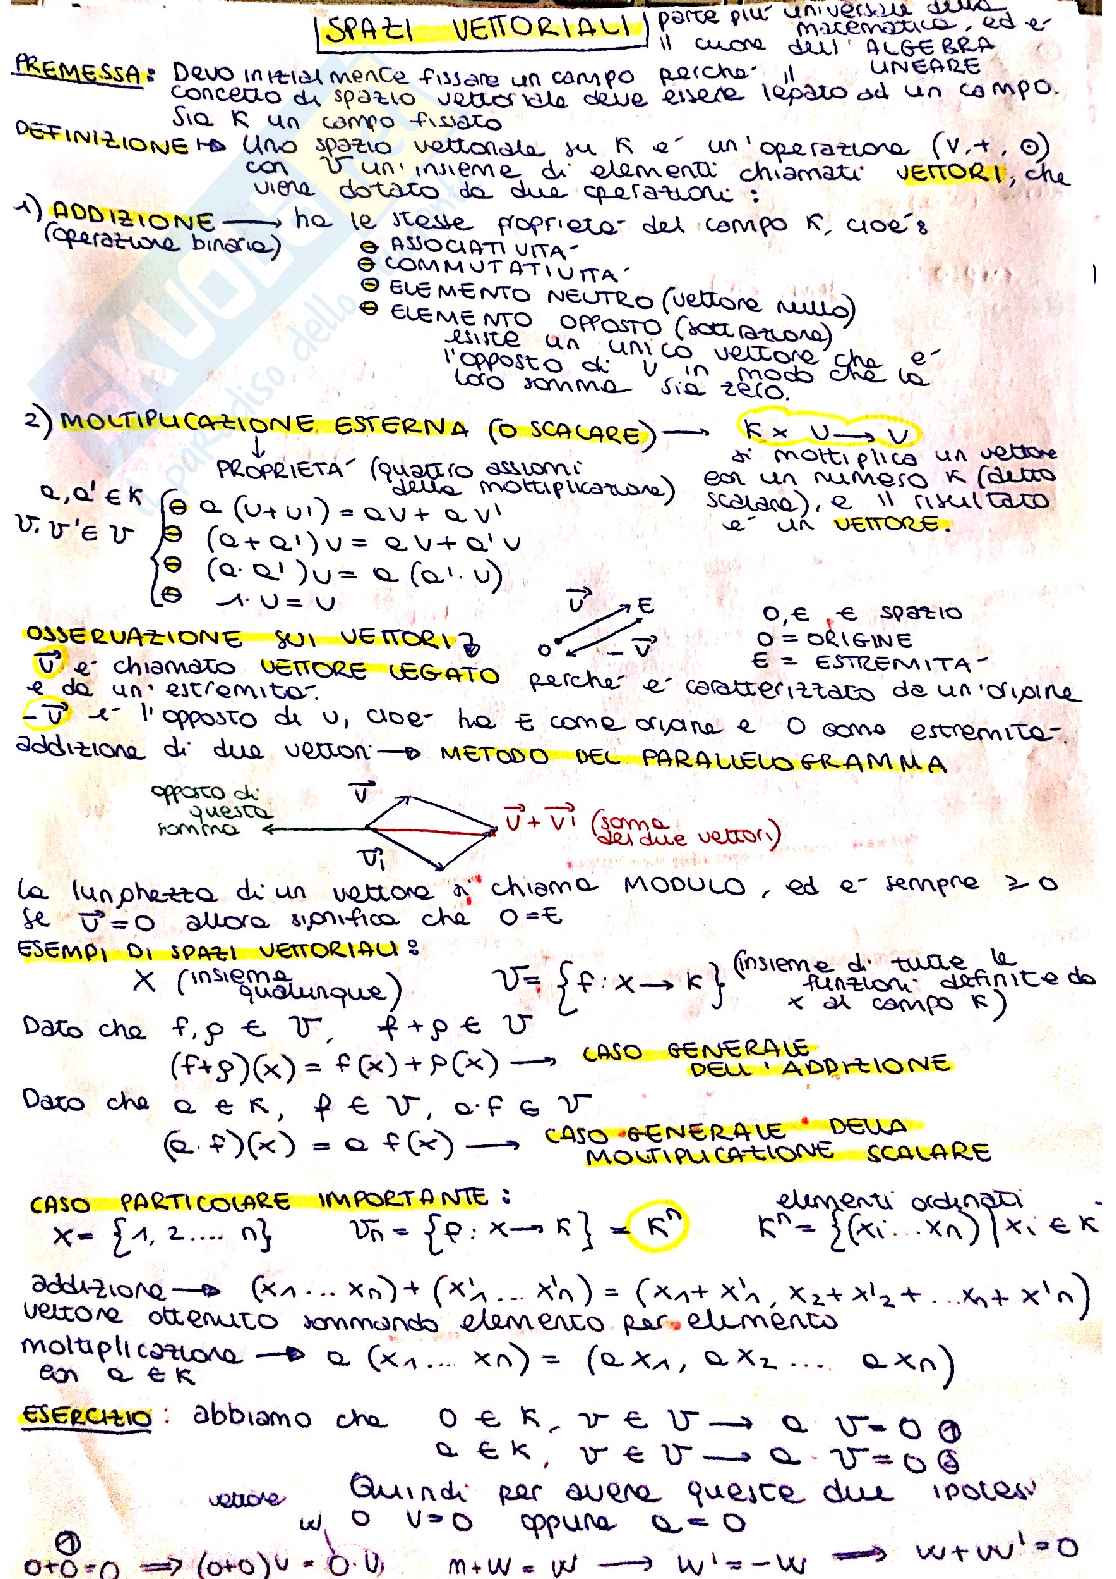 SPAZI VETTORIALI parte più universale della
matematica, ed è
il cuore dell'ALGEBRA
LINEARE
PREMESSA: Devo inizialmente fissare un campo perché il
concetto di spazio vettoriale deve essere legato ad un campo.
Sia K un campo fissato
DEFINIZIONE → Uno spazio vettoriale su K è un'operazione (V,+,⊙)
con V un'insieme di elementi chiamati VETTORI, che
viene dotato da due operazioni:
1) ADDIZIONE → ha le stesse proprietà del campo K, cioè:
(operazione binaria)
⊖ ASSOCIATIVITÀ
⊖ COMMUTATIVITÀ
⊖ ELEMENTO NEUTRO (vettore nullo)
⊖ ELEMENTO OPPOSTO (sottrazione)
esiste un unico vettore che è
l'opposto di v in modo che la
loro somma sia zero.
2) MOLTIPLICAZIONE ESTERNA (O SCALARE) → K × V → V
si moltiplica un vettore
con un numero K (detto
scalare), e il risultato
è un VETTORE.
↓
PROPRIETÀ (quattro assiomi
della moltiplicazione)
a, a' ∈ K
v, v' ∈ V
⊖ a (v+v') = av + av'
⊖ (a+a')v = av + a'v
⊖ (a·a')v = a (a'·v)
⊖ 1·v = v
OSSERVAZIONE SUI VETTORI
v E
O -v
O, E, ∈ spazio
O = ORIGINE
E = ESTREMITÀ
v è chiamato VETTORE LEGATO perché è caratterizzato da un'origine
e da un'estremità.
-v è l'opposto di v, cioè ha E come origine e O come estremità.
addizione di due vettori → METODO DEL PARALLELOGRAMMA
opposto di
questa
somma
v
v + v' (somma
dei due vettori)
v'
La lunghezza di un vettore si chiama MODULO, ed è sempre ≥ 0
Se v = 0 allora significa che O = E
ESEMPI DI SPAZI VETTORIALI:
X (insieme
qualunque)
V = {f: X → K} (insieme di tutte le
funzioni definite da
x al campo K)
Dato che f, g ∈ V, f+g ∈ V
(f+g)(x) = f(x) + g(x) → CASO GENERALE
DELL'ADDIZIONE
Dato che a ∈ K, f ∈ V, a·f ∈ V
(a·f)(x) = a f(x) → CASO GENERALE DELLA
MOLTIPLICAZIONE SCALARE
CASO PARTICOLARE IMPORTANTE:
elementi ordinati
X = {1, 2 .... n} Vn = {f: X → K} = Kⁿ Kⁿ = {(xi ... xn) | xi ∈ K
addizione → (x1 ... xn) + (x'1 ... x'n) = (x1 + x'1, x2 + x'2 + ... xn + x'n)
vettore ottenuto sommando elemento per elemento
moltiplicazione → a (x1 ... xn) = (ax1, ax2 .... axn)
con a ∈ K
ESERCIZIO: abbiamo che 0 ∈ K, v ∈ V → a v = 0 ①
a ∈ K, v ∈ V → a · v = 0 ②
Quindi per avere queste due ipotesi
vettore
w 0 v = 0 oppure a = 0
①
0+0=0 ⇒ (0+0)v = 0·v, m+w = w → w' = -w ⇒ w + w' = 0